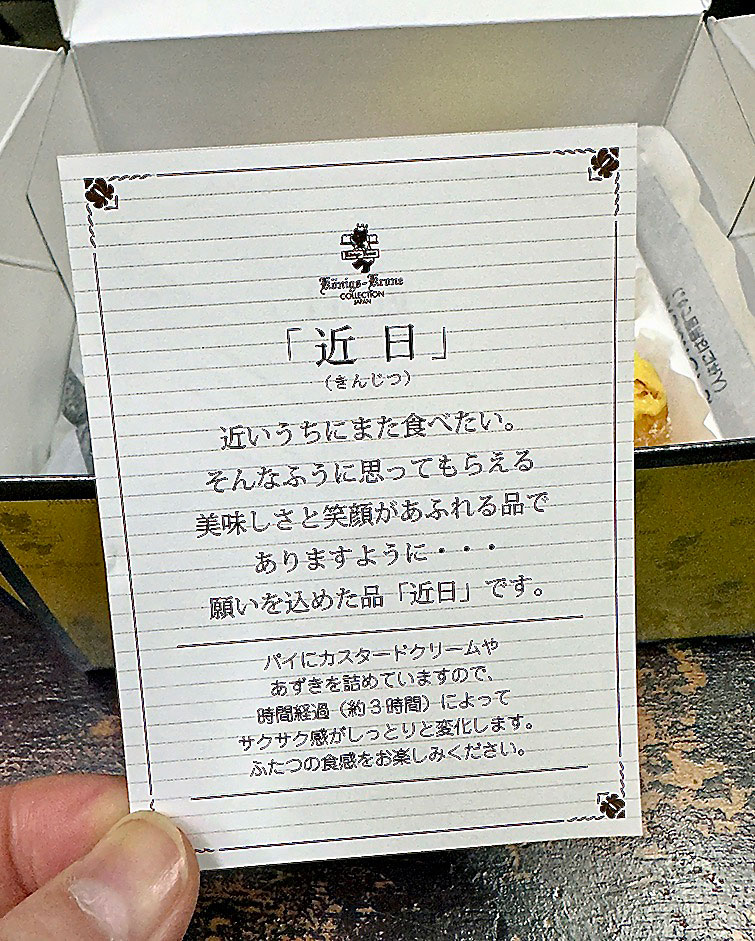 Königs-Krone
COLLECTION
JAPAN
「近日」
（きんじつ）
近いうちにまた食べたい。
そんなふうに思ってもらえる
美味しさと笑顔があふれる品で
ありますように・・・
願いを込めた品「近日」です。
パイにカスタードクリームや
あずきを詰めていますので、
時間経過（約３時間）によって
サクサク感がしっとりと変化します。
ふたつの食感をお楽しみください。